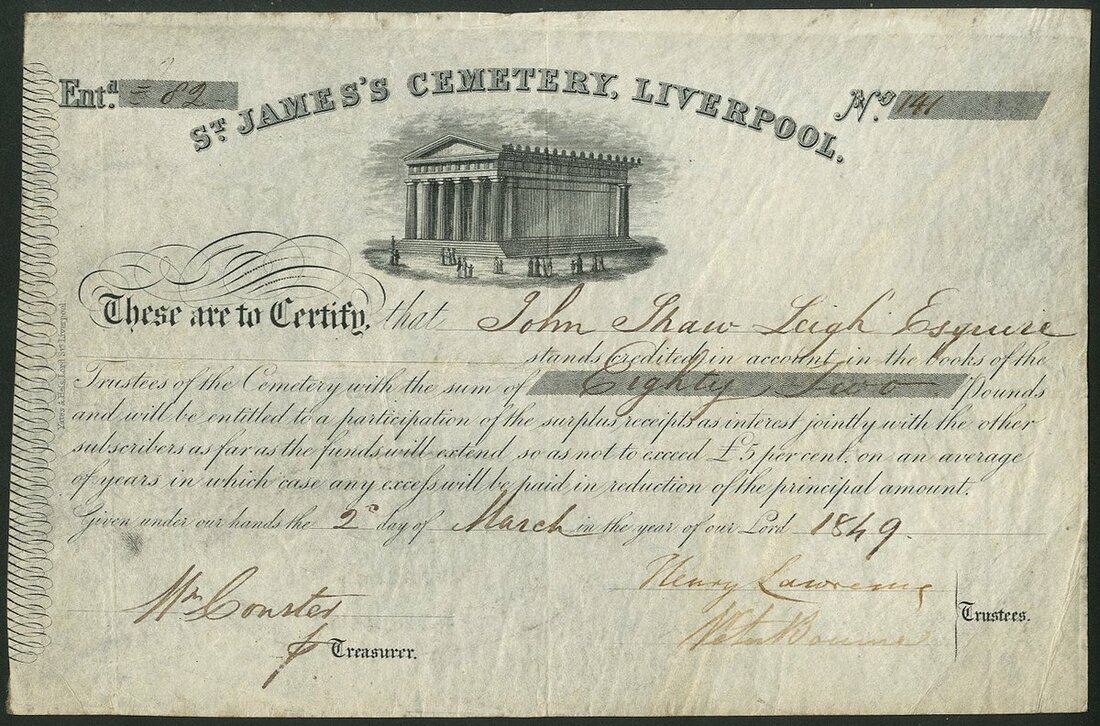 Entd. = 82
ST JAMES'S CEMETERY, LIVERPOOL.
No. 141
These are to Certify, that John Shaw Leigh Esquire
stands credited in account in the books of the
Trustees of the Cemetery with the sum of Eighty Two Pounds
and will be entitled to a participation of the surplus receipts as interest jointly with the other
subscribers as far as the funds will extend so as not to exceed £5 per cent. on an average
of years in which case any excess will be paid in reduction of the principal amount.
Given under our hands the 2d day of March in the year of our Lord 1849.
Henry Lawrence
Wm
Treasurer.
Trustees.
Lord St. Liverpool